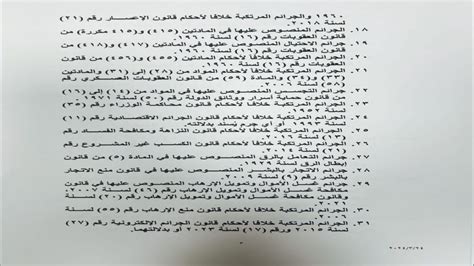 ١٩٦٠ والجرائم المرتكبة خلافا لأحكام قانون الإعسار رقم (٢١)
لسنة ٢٠١٨.
١٨. الجرائم المنصوص عليها في المادتين (٤١٥) و(٤١٥ مكررة) من
قانون العقوبات رقم (١٦) لسنة ١٩٦٠.
١٩. جرائم الاحتيال المنصوص عليها في المادتين (٤١٧) و(٤١٨) من
قانون العقوبات رقم (١٦) لسنة ١٩٦٠.
٢٠. الجرائم المرتكبة خلافا لأحكام المادتين (٤٥٥) و(٤٥٦) من
قانون العقوبات رقم (١٦) لسنة ١٩٦٠.
٢١. الجرائم المرتكبة خلافا لأحكام المواد من (٢٨) إلى (٣١) والمادتين
(٣٣) و(٣٤) والمادة (٥٥) من قانون العقوبات العسكري رقم
(٥٨) لسنة
٢٢. جرائم التجسس المنصوص عليها في المواد من (١٤) إلى (١٦)
من قانون حماية أسرار ووثائق الدولة رقم (٥٠) لسنة ١٩٧١.
٢٣. الجرائم المرتكبة خلافا لأحكام قانون محاكمة الوزراء رقم (٣٥)
لسنة
٢٤. الجرائم المرتكبة خلافا لأحكام قانون الجرائم الاقتصادية رقم (١١)
لسنة ١٩٩٣ أو أي جرم يسند بدلالته.
٢٥. الجرائم المرتكبة خلافا لأحكام قانون النزاهة ومكافحة الفساد رقم
(١٣) لسنة ٢٠١٦.
٢٦. الجرائم المرتكبة خلافا لأحكام قانون الكسب غير المشروع رقم
(٢١) لسنة ٢٠١٤.
٢٧. جرائم التعامل بالرق المنصوص عليها في المادة (٥) من قانون
إبطال الرق لسنة ١٩٢٩.
٢٨. جرائم الاتجار بالبشر المنصوص عليها في قانون منع الاتجار
بالبشر رقم (٩) لسنة ٢٠٠٩.
٢٩. جرائم غسل الأموال وتمويل الارهاب المنصوص عليها في قانون
مكافحة غسل الأموال وتمويل الارهاب رقم (٤٦) لسنة ٢٠٠٧
وقانون مكافحة غسل الأموال وتمويل الارهاب رقم (٢٠) لسنة
٢٠٢١.
٣٠. الجرائم المرتكبة خلافا لأحكام قانون منع الإرهاب رقم (٥٥) لسنة
٢٠٠٦.
٣١. الجرائم المرتكبة خلافا لأحكام قانون الجرائم الالكترونية رقم (٢٧)
لسنة ٢٠١٥ ورقم (١٧) لسنة ٢٠٢٣ أو بدلالتهما.
٢٠٢٤/٣/٢٤